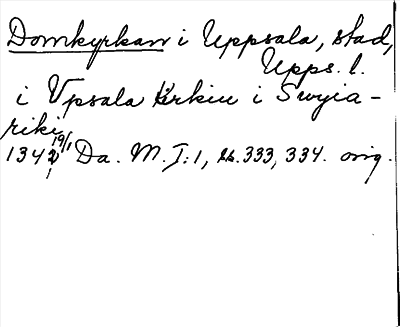 Domkyrkan i Uppsala, stad,
Upps. l.
i Vpsala Kirkiu i Swyia-
riki
1342 19/1 Da. M. I:1, ss. 333, 334. orig.